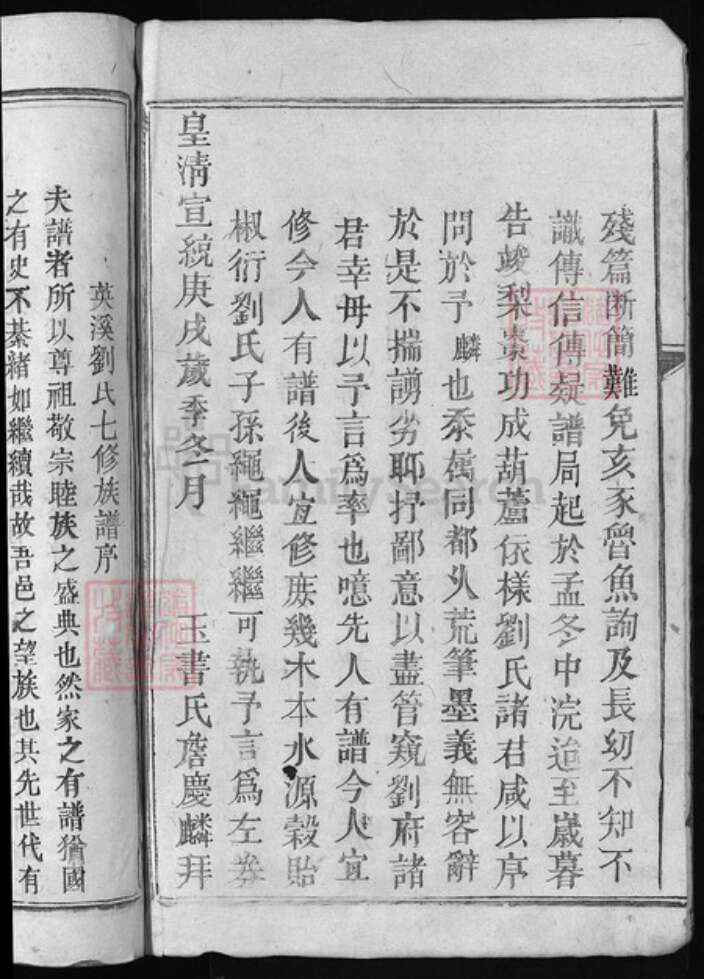 殘篇断簡難免亥豕魯魚詢及長幼不知不
識傳信傳疑譜局起於孟冬中浣迨至嵗暮
告竣梨棗功成葫蘆依樣劉氏諸君咸以序
問於予麟也忝属同都久荒筆墨義無容辭
於是不揣謭劣聊抒鄙意以盡管窺劉府諸
君幸毋以予言爲率也噫先人有譜今人宜
修今人有譜後人宜修庻幾木本水源穀貽
椒衍劉氏子孫繩繩繼繼可執予言爲左券
皇清宣統庚戌嵗季冬月 玉書氏詹慶麟拜
英溪劉氏七修族譜序
夫譜者所以尊祖敬宗睦族之盛典也然家之有譜猶國
之有史不綦緒如繼續哉故吾邑之望族也其先世代有